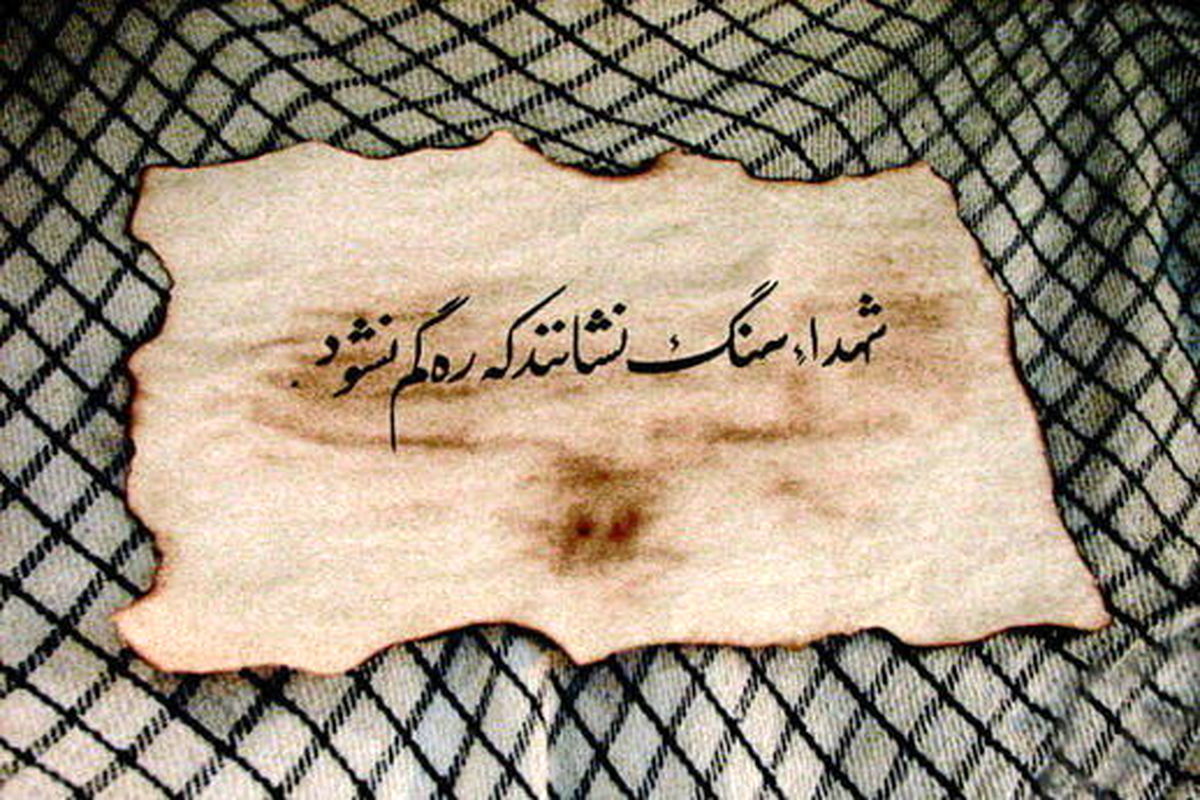 شهداء، سنگ نشانند که ره گم نشود.